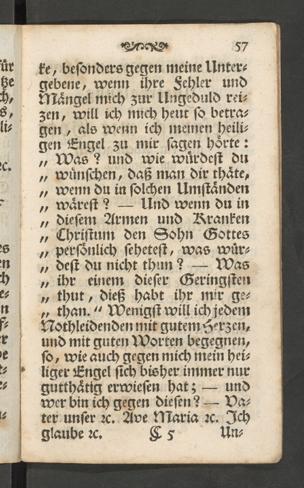 57
ke, besonders gegen meine Unter-
gebene, wenn ihre Fehler und
Mängel mich zur Ungeduld rei-
zen, will ich mich heut so betra-
gen, als wenn ich meinen heili-
gen Engel zu mir sagen hörte:
„ Was? und wie würdest du
„ wünschen, daß man dir thäte,
„ wenn du in solchen Umständen
„ wärest? — Und wenn du in
„ diesem Armen und Kranken
„ Christum den Sohn Gottes
„ persönlich sehetest, was wür-
„ dest du nicht thun? — Was
„ ihr einem dieser Geringsten
„ thut, dieß habt ihr mir ge-
„ than.“ Wenigst will ich jedem
Nothleidenden mit gutem Herzen,
und mit guten Worten begegnen,
so, wie auch gegen mich mein hei-
liger Engel sich bisher immer nur
gutthätig erwiesen hat; — und
wer bin ich gegen diesen? — Va-
ter unser ꝛc. Ave Maria ꝛc. Ich
glaube ꝛc. C 5 Un-